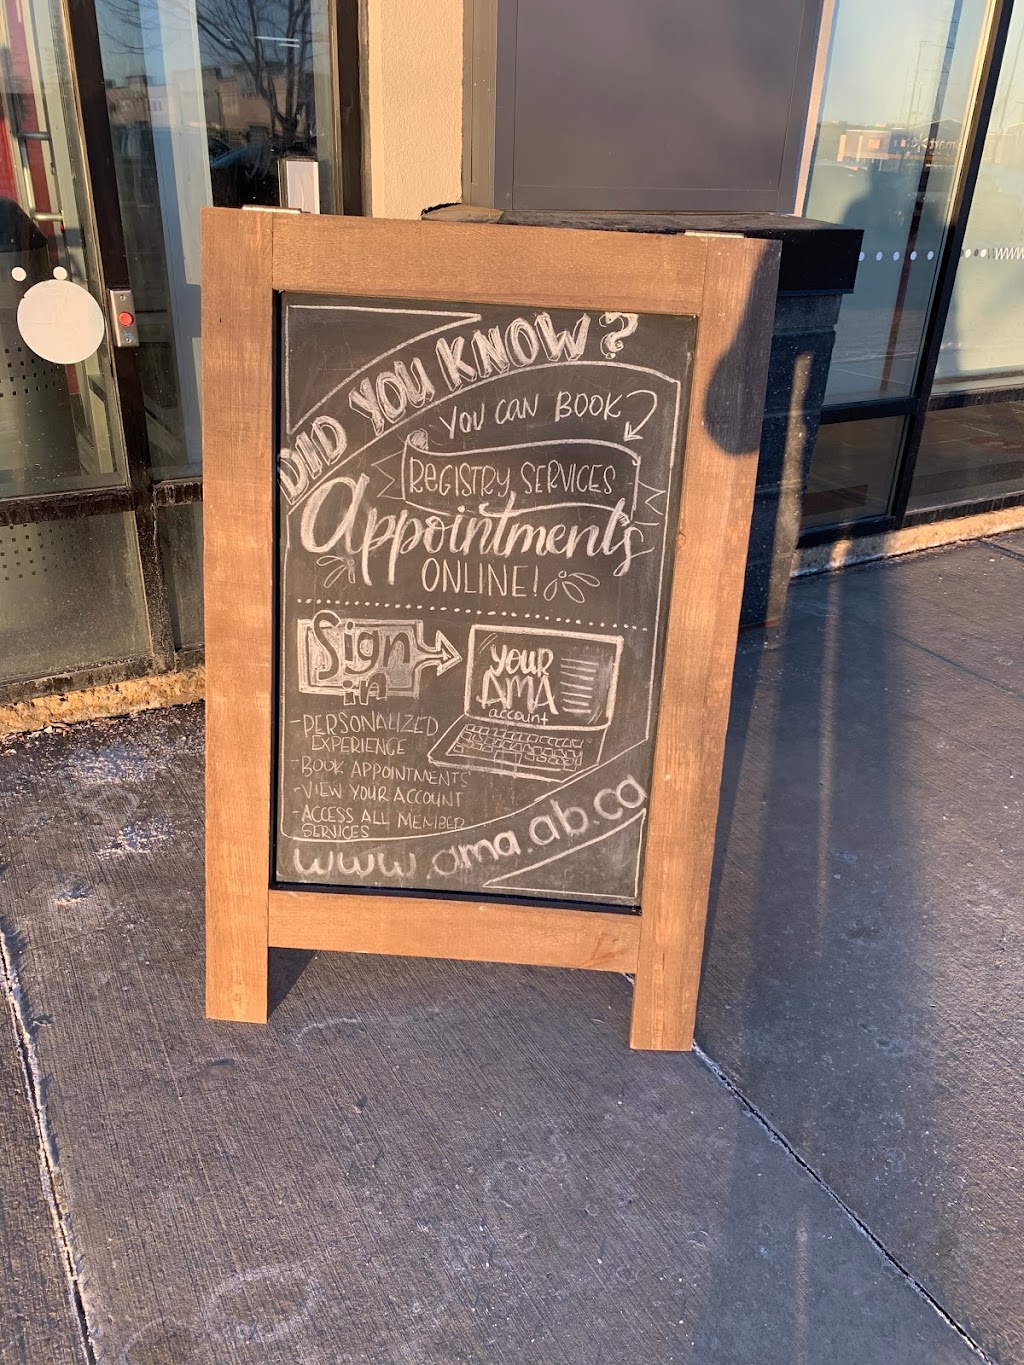 DID YOU KNOW?
YOU CAN BOOK
REGISTRY SERVICES
Appointments
ONLINE!
Sign
in
YOUR
AMA
account
- PERSONALIZED
EXPERIENCE
- BOOK APPOINTMENTS
- VIEW YOUR ACCOUNT
- ACCESS ALL MEMBER
SERVICES
www.ama.ab.ca
www